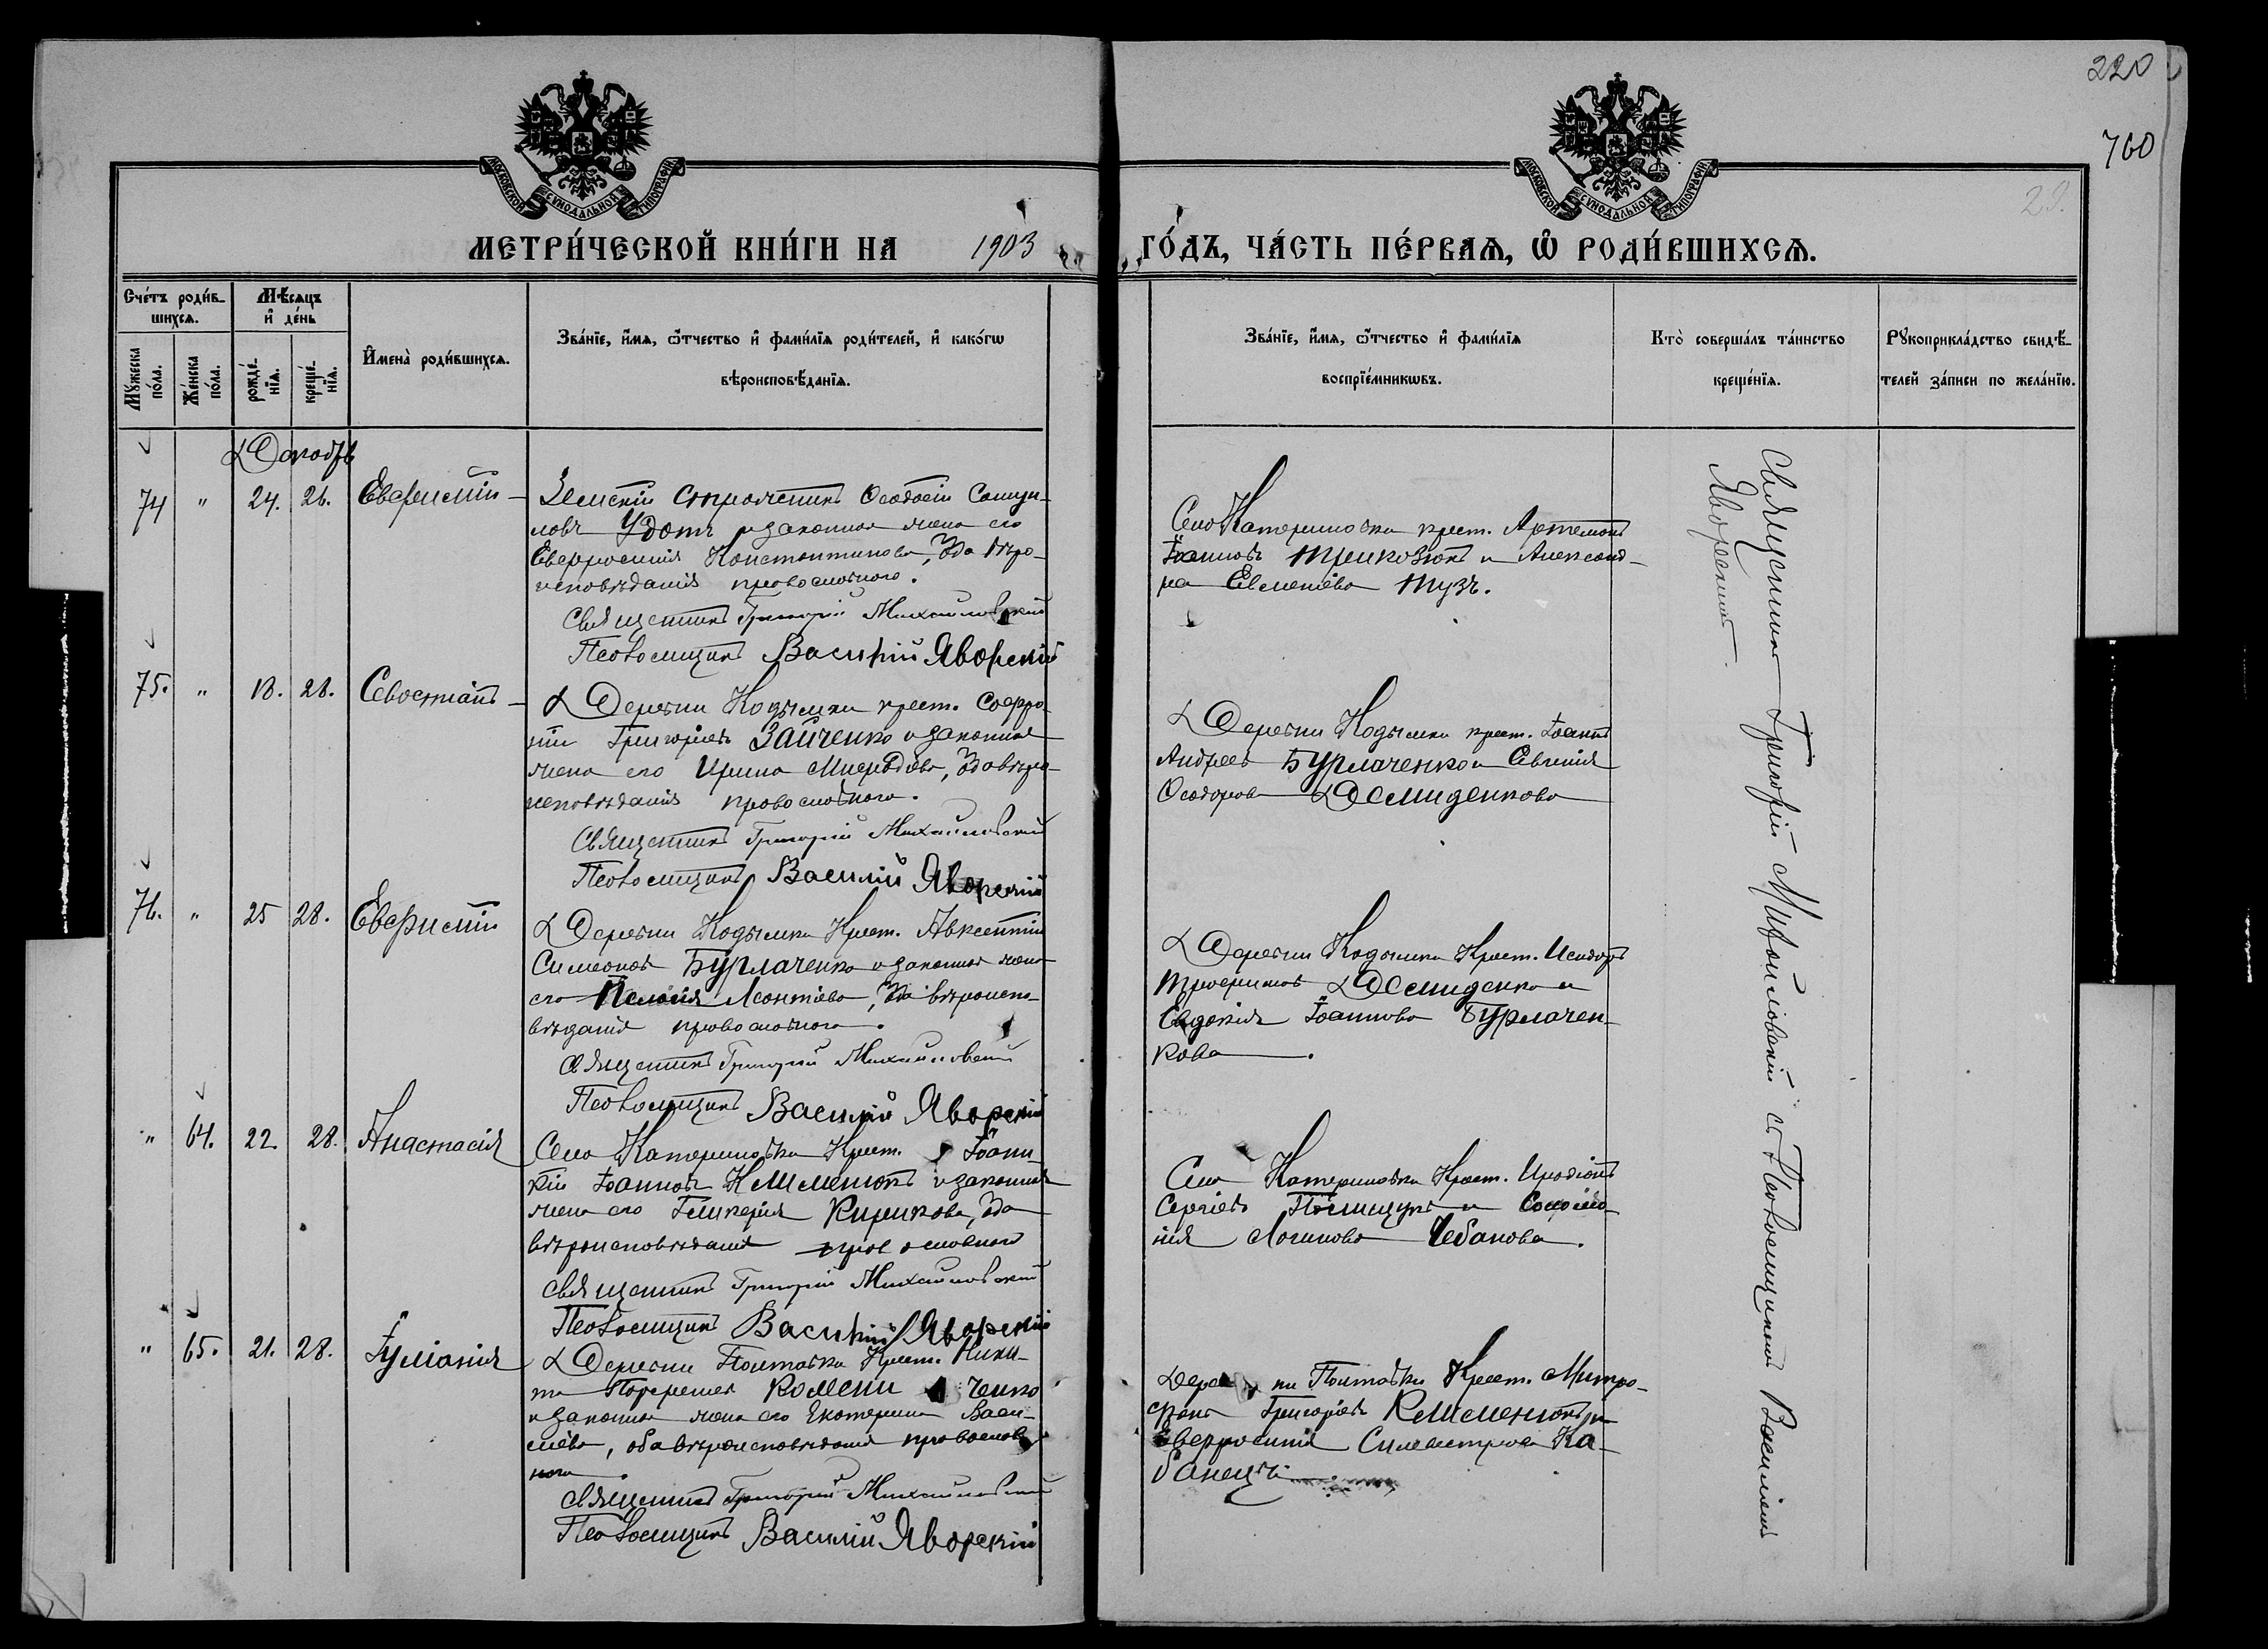 220
760
29.
МОСКОВСКОЙ СѴНОДАЛЬНОЙ ТИПОГРАФІИ
МОСКОВСКОЙ СѴНОДАЛЬНОЙ ТИПОГРАФІИ
МЕТРИ́ЧЕСКОЙ КНИ́ГИ НА 1903 ГО́ДЪ, ЧА́СТЬ ПЕ́РВАѦ, Ѡ҆ РОДИ́ВШИХСѦ.
Сче́тъ роди́в-
шихсѧ.
Мꙋ́жеска по́ла.
Же́нска по́ла.
Мѣ́сѧцъ
и҆ де́нь
рожде́-
нїѧ.
креще́-
нїѧ.
И҆мена̀ роди́вшихсѧ.
Зва́нїе, и҆́мѧ, ѻ҆́тчество и҆ фами́лїѧ роди́телей, и҆ како́гѡ
вѣроисповѣ́данїѧ.
Зва́нїе, и҆́мѧ, ѻ҆́тчество и҆ фами́лїѧ
воспрїе́мникѡвъ.
Кто̀ соверша́лъ та́инство
креще́нїѧ.
Рꙋкоприкла́дство свидѣ́-
телей за́писи по жела́нїю.
Декабрь
74 " 24. 26. Евфимій
Земскій стражникъ Ѳеодосій Самуи-
ловъ Удотъ и законная жена его
Евфросинія Константинова, оба вѣро-
исповѣданія православнаго.
Священникъ Григорій Михайловскій
Псаломщикъ Василій Яворскій
Село Катериновка крест. Артемонъ
Іоанновъ и Александ-
ра Тузъ.
75. " 18. 28. Севостіанъ
Деревни Кодымки крест. Софро-
ній Григоріевъ Зайченко и законная
жена его Ирина Мефодіева, оба вѣро-
исповѣданія православнаго.
Священникъ Григорій Михайловскій
Псаломщикъ Василій Яворскій
Деревни Кодымки крест. Іоаннъ
Андреевъ Бурлаченко и Евгенія
Ѳеодорова Демиденкова
76. " 25 28. Евфимій
Деревни Кодымки Крест. Авксентій
Симеоновъ Бурлаченко и законная жена
его Пелагія Леонтіева, оба вѣроиспо-
вѣданія православнаго.
Священникъ Григорій Михайловскій
Псаломщикъ Василій Яворскій
Деревни Кодымки Крест. Исидоръ
Трофимовъ Демиденко и
Евдокія Іоаннова Бурлачен-
кова.
" 64. 22. 28. Анастасія
Село Катериновка Крест. Іоанни-
кій Іоанновъ и законная
жена его Гликерія Кирикова, оба
вѣроисповѣданія православнаго
Священникъ Григорій Михайловскій
Псаломщикъ Василій Яворскій
Село Катериновка Крест. Иродіонъ
Сергіевъ и Соломо-
нія Логинова Чебанова.
" 65. 21. 28. Іуліанія
Деревни Полтавка Крест. Ники-
та Порфирiевъ Комени ченко
и законная жена его Екатерина Васи-
ліева, оба вѣроисповѣданія православ-
наго
Священникъ Григорій Михайловскій
Псаломщикъ Василій Яворскій
Деревни Полтавки Крест. Митро-
фанъ Григоріевъ и
Евфросинія Силвестрова Ка-
банецъ.
Священникъ Григорій Михайловскій съ Псаломщикомъ Василіемъ
Яворскимъ.